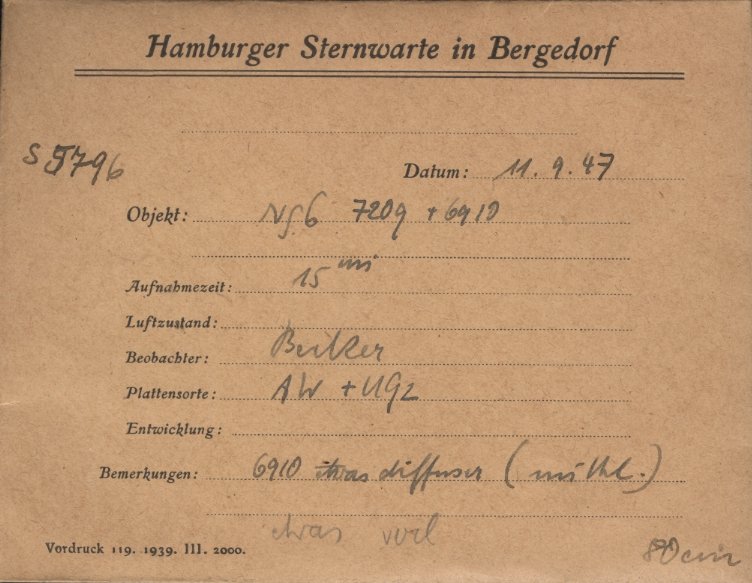 Hamburger Sternwarte in Bergedorf
S 5796
Datum: 11. 9. 47
Objekt: NGC 7209 + 6910
Aufnahmezeit: 15 min
Luftzustand:
Beobachter: Becker
Plattensorte: AW + UG2
Entwicklung:
Bemerkungen: 6910 etwas diffuser (
etwas
Vordruck 119. 1939. III. 2000.
80 cm